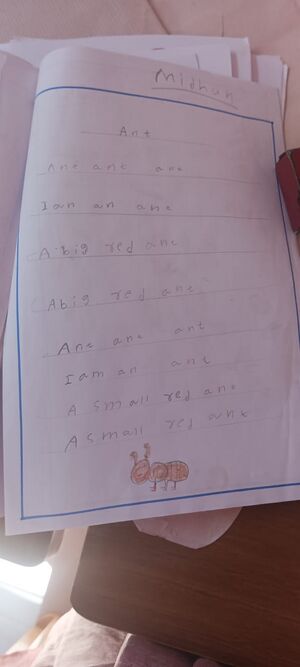 Midhun
Ant
Ant ant ant
I am an ant
A big red ant
A big red ant
Ant ant ant
I am an ant
A small red ant
A small red ant